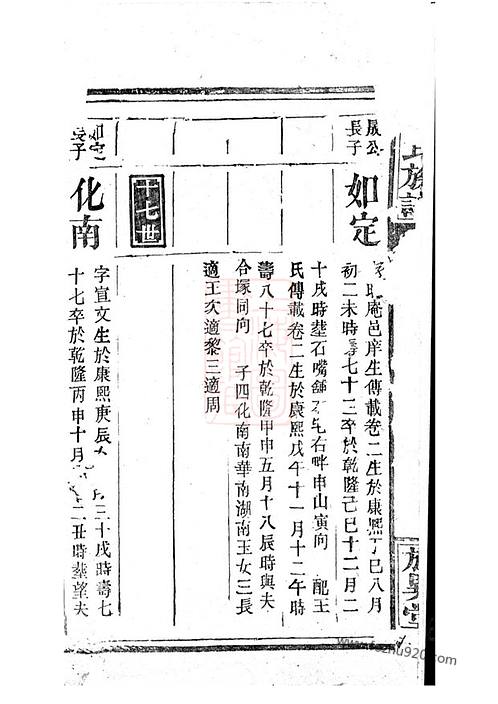 族譜
長子
如定
庵邑庠生傳載卷二生於康熙丁巳八月
初二未時壽七十三卒於乾隆己巳十二月二
十戌時塟石嘴舖 右畔申山寅向 配王
氏傳載卷二生於康熙戊午十一月十二午時
壽八十七卒於乾隆甲申五月十八辰時與夫
合塚同向 子四化南南華南湖南玉女三長
適王次適黎三適周
十七世
如定
長子
化南
字宣文生於康熙庚辰 三十戌時壽七
十七卒於乾隆丙申十月 二丑時塟望夫
www.fozhu920.com